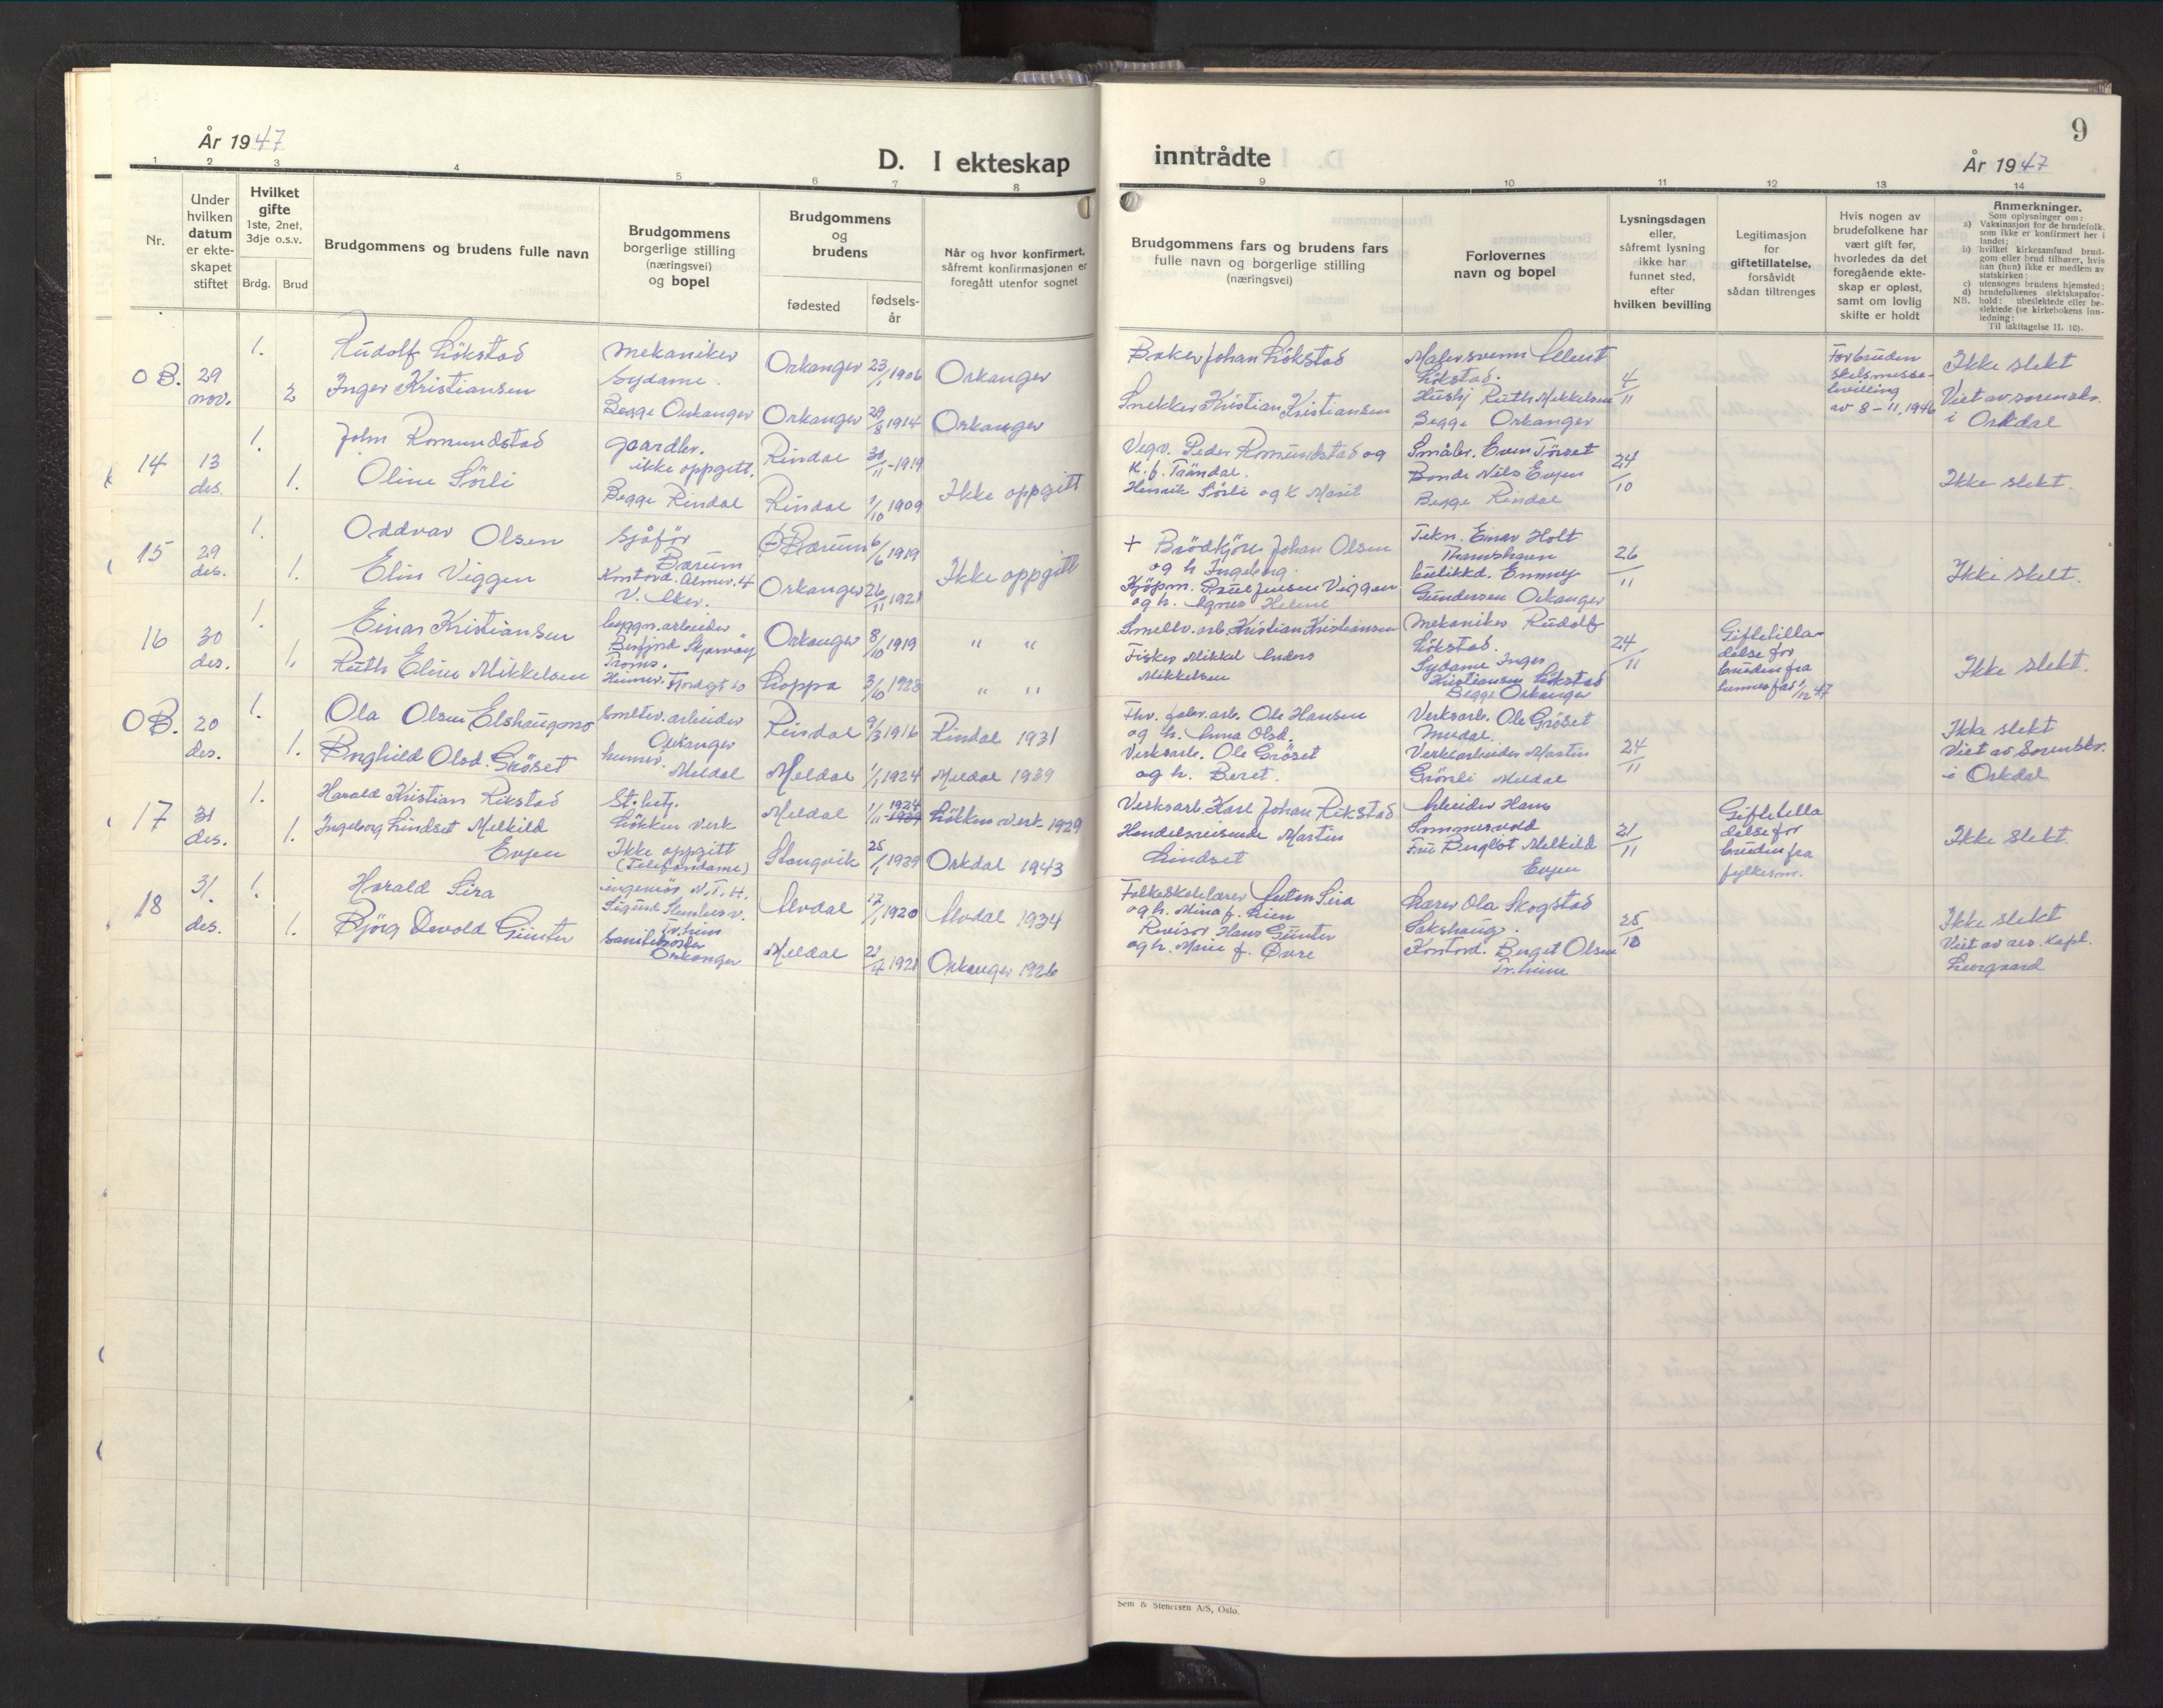 År 1947
D. I ekteskap
1 2 3 4 5 6 7 8
Nr.
Under
hvilken
datum
er ekte-
skapet
stiftet
Hvilket
gifte
1ste, 2net,
3dje o.s.v.
Brdg.
Brud
Brudgommens og brudens fulle navn
Brudgommens
borgerlige stilling
(næringsvei)
og bopel
Brudgommens
og
brudens
fødested
fødsels-
år
Når og hvor konfirmert,
såfremt konfirmasjonen er
foregått utenfor sognet
O B. 29 nov.
1. Rudolf Lökstad mekaniker Orkanger 23/1 1906 Orkanger
2 Inger Kristiansen Sydame.
Begge Orkanger Orkanger 29/8 1914 Orkanger
14 13 des.
1. John Romundstad gaardbr. Rindal 30/11-1919
ikke oppgitt.
1. Oline Sörli Begge Rindal Rindal 1/10 1909 Ikke oppgitt
15 29 des.
1. Oddvar Olsen Sjåför Bærum 6/6 1919
Bærum
1. Elin Viggen Kontord. 4 Orkanger 26/11 1921 Ikke oppgitt
V. Aker.
16 30 des.
1. Einar Kristiansen byggn.arbeider Orkanger 8/10 1919 " "
Skjærvöy
Troms.
1. Ruth Eline Mikkelsen Fjordgt 10 Loppa 3/10 1928 " "
O B. 20 des.
1. Ola Olsen Elshaugmo Smeltev. arbeider Rindal 9/3 1916 Rindal 1931
Orkanger
1. Borghild Olsd. Gröset Meldal Meldal 1/1 1924 Meldal 1939
17 31 des.
1. Harald Kristian Rikstad St. betj. Meldal 1/11 1924 Lökken Verk 1929
Lökken Verk
1. Ingeborg Lindset Melkild Ikke oppgitt Stangvik 25/1 1929 Orkdal 1943
Evjen (Telefondame)
18 31. des.
1. Harald Lira ingeniör N.T.H. Alvdal 17/1 1920 Alvdal 1934
Tr.heim
1. Björg Devold Günter Orkanger Meldal 21/4 1921 Orkanger 1926
9
inntrådte
År 1947
9 10 11 12 13 14
Brudgommens fars og brudens fars
fulle navn og borgerlige stilling
(næringsvei)
Forlovernes
navn og bopel
Lysningsdagen
eller,
såfremt lysning
ikke har
funnet sted,
efter
hvilken bevilling
Legitimasjon
for
giftetillatelse,
forsåvidt
sådan tiltrenges
Hvis nogen av
brudefolkene har
vært gift før,
hvorledes da det
foregående ekte-
skap er opløst,
samt om lovlig
skifte er holdt
Anmerkninger.
Som oplysninger om:
a) Vaksinasjon for de brudefolk.
som ikke er konfirmert her i
landet;
b) hvilket kirkesamfund brud-
gom eller brud tilhører, hvis
han (hun) ikke er medlem av
statskirken;
c) utensogns brudens hjemsted;
d) brudefolkenes slektskapsfor-
NB. hold: ubeslektede eller be-
slektede (se kirkebokens inn-
ledning:
Til iakttagelse II. 10).
Baker Johan Lökstad Malersvenn
Lökstad. 4/11
Snekker Kristian Kristiansen Ruth Mikkelsen
Begge Orkanger
For bruden
skilsmisse-
bevilling
av 8-11. 1946
Ikke slekt
Viet av sorenskr.
i Orkdal
Vegv. Peder Romundstad og
k. f. Tröndal.
Henrik Sörli og k Marit
Småbr. Even Törset
Bonde Nils Evjen
Begge Rindal
24/10
Ikke slekt.
+ Brödkjörer Johan Olsen
og h Ingeborg.
Kjöpm. Paul Jensen Viggen
og h. Agnes Helene
Tekn. Einar Holt
Thamshavn
Butikkd. Emmy
Gundersen Orkanger
26/11
Ikke slekt.
Smeltev. arb. Kristian Kristiansen
Fisker Mikkel Anders
Mikkelsen
Mekaniker Rudolf
Lökstad.
Sydame Inger
Kristiansen Lökstad
Begge Orkanger
24/11
Giftetilla-
delse for
bruden fra
1/12 47
Ikke slekt.
Fhv. fabr.arb. Ole Hansen
og h. Anna Olsd.
Verksarb. Ole Gröset
og h. Beret.
Verksarb. Ole Gröset
Meldal.
Verksarbeider Martin
Grönli Meldal
24/11
Ikke slekt
Viet av Sorenskr.
i Orkdal
Verksarb. Karl Johan Rikstad
Handelsreisende Martin
Lindset
Arbeider Hans
Sommervold
Fru Bergljot Melkild
Evjen
21/11
Giftetilla
delse for
bruden fra
fylkesm.
Ikke slekt.
Folkeskolelærer Anton Lira
og h. Mina f. Lien
Revisor Hans Günter
og h. Marie f. Övre
Lærer Ola Skogstad
Sakshaug.
Kontord. Berget Olsen
Tr.heim
25/10
Ikke slekt
Viet av res. kapl.
Sem & Stenersen A/S, Oslo.